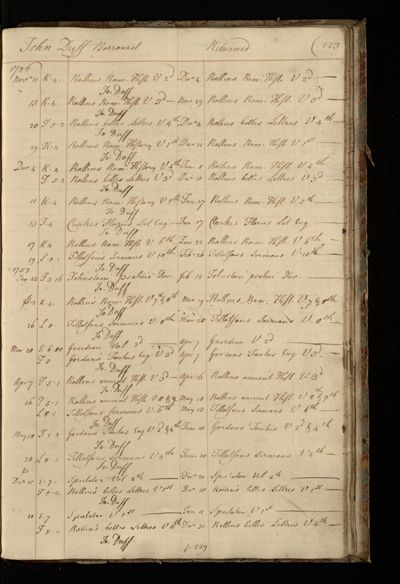 John Duff Borrowed Returned 223
1756
Novr 11 K. 4. Rollins Rom. Hist. V 2d Dec 4 Rollins Rom. Hist. V 2d
Jo. Duff
18 K. 4. Rollins Rom. Hist. V 3d Nov 29 Rollins Rom. Hist. V 3d
Jo. Duff
20 F. 5. 2 Rollins belles Lettres V 4th Dec 4 Rollins belles Lettres V 4th
Jo Duff
29 K. 4 Rollins Rom. History V 1st Dec 11 Rollins Rom. Hist. V 1st
Jo. Duff
Dec 4 K. 4 Rollins Rom. History V 4th Jan 8 Rollins Rom. Hist. V 4th
F 5. 2 Rollins belles Lettres V 3d Dec 11 Rollins belles Lettres V 3d
Jo. Duff
11 K. 4 Rollins Rom. History V 5th Jan 17 Rollins Rom. Hist. V 5th
Jo. Duff
13 F. 4 Clarkes Florus Lat Eng Jan 17 Clarkes Florus Lat Eng
Jo. Duff
17 K. 4 Rollins Rom. Hist. V 6th Jan 22 Rollins Rom. Hist. V 6th
19 L. 8 Tillotsons Sermons V 10th Feb 26 Tillotsons Sermons V 10th
1757 Jo. Duff
Jan 22 F. 3. Johnstons Psalms Jo. Duff Feb 12 Johnstons psalms
K. 4. Rollins Rom. Hist. V 7 & 8th Mar Rollins Rom. Hist. V 7 & 8th
Jo Duff
26 L. 8. Tillotsons Sermons V 9th Mar 20 Tillotsons Sermons V 9th
Jo. Duff
Mar 20 E. 6. Guardian Vol 2d Apr 7 Guardian V 2d
F 5. Gordons Tacitus Eng V 3d Apr 7 Gordons Tacitus Eng V 3d
Jo. Duff
Apr 7 F. 5. 1 Rollins ancient Hist. V 3d Apr 16 Rollins ancient Hist. V 3d
Jo. Duff
16 F. 5. 1 Rollins ancient Hist. V 8 & 9 May 10 Rollins ancient Hist. V 8 & 9th
L 8. 1 Tillotsons Sermons V 6th May 10 Tillotsons Sermons V 6th
Jo. Duff
May 10 F. 5. Gordons Tacitus Eng V 2d & 4th Jun 10 Gordons Tacitus V 2d & 4th
Jo. Duff
20 L. 8. Tillotsons Sermons V 4th June 10 Tillotsons Sermons V 4th
Jo. Duff
Dec 10 E. 7. Spectator Vol 4th Dec 20 Spectator Vol 4th
F 5. 2 Rollins belles Lettres V 1st Dec 20 Rollins belles Lettres V 1st
Jo. Duff
20 E. 7 Spectator V 1st Jan 11 Spectator V 1st
F 5. Rollins belles Lettres V 4th Dec 31 Rollins belles Lettres V 4th
Jo. Duff.
p. 229